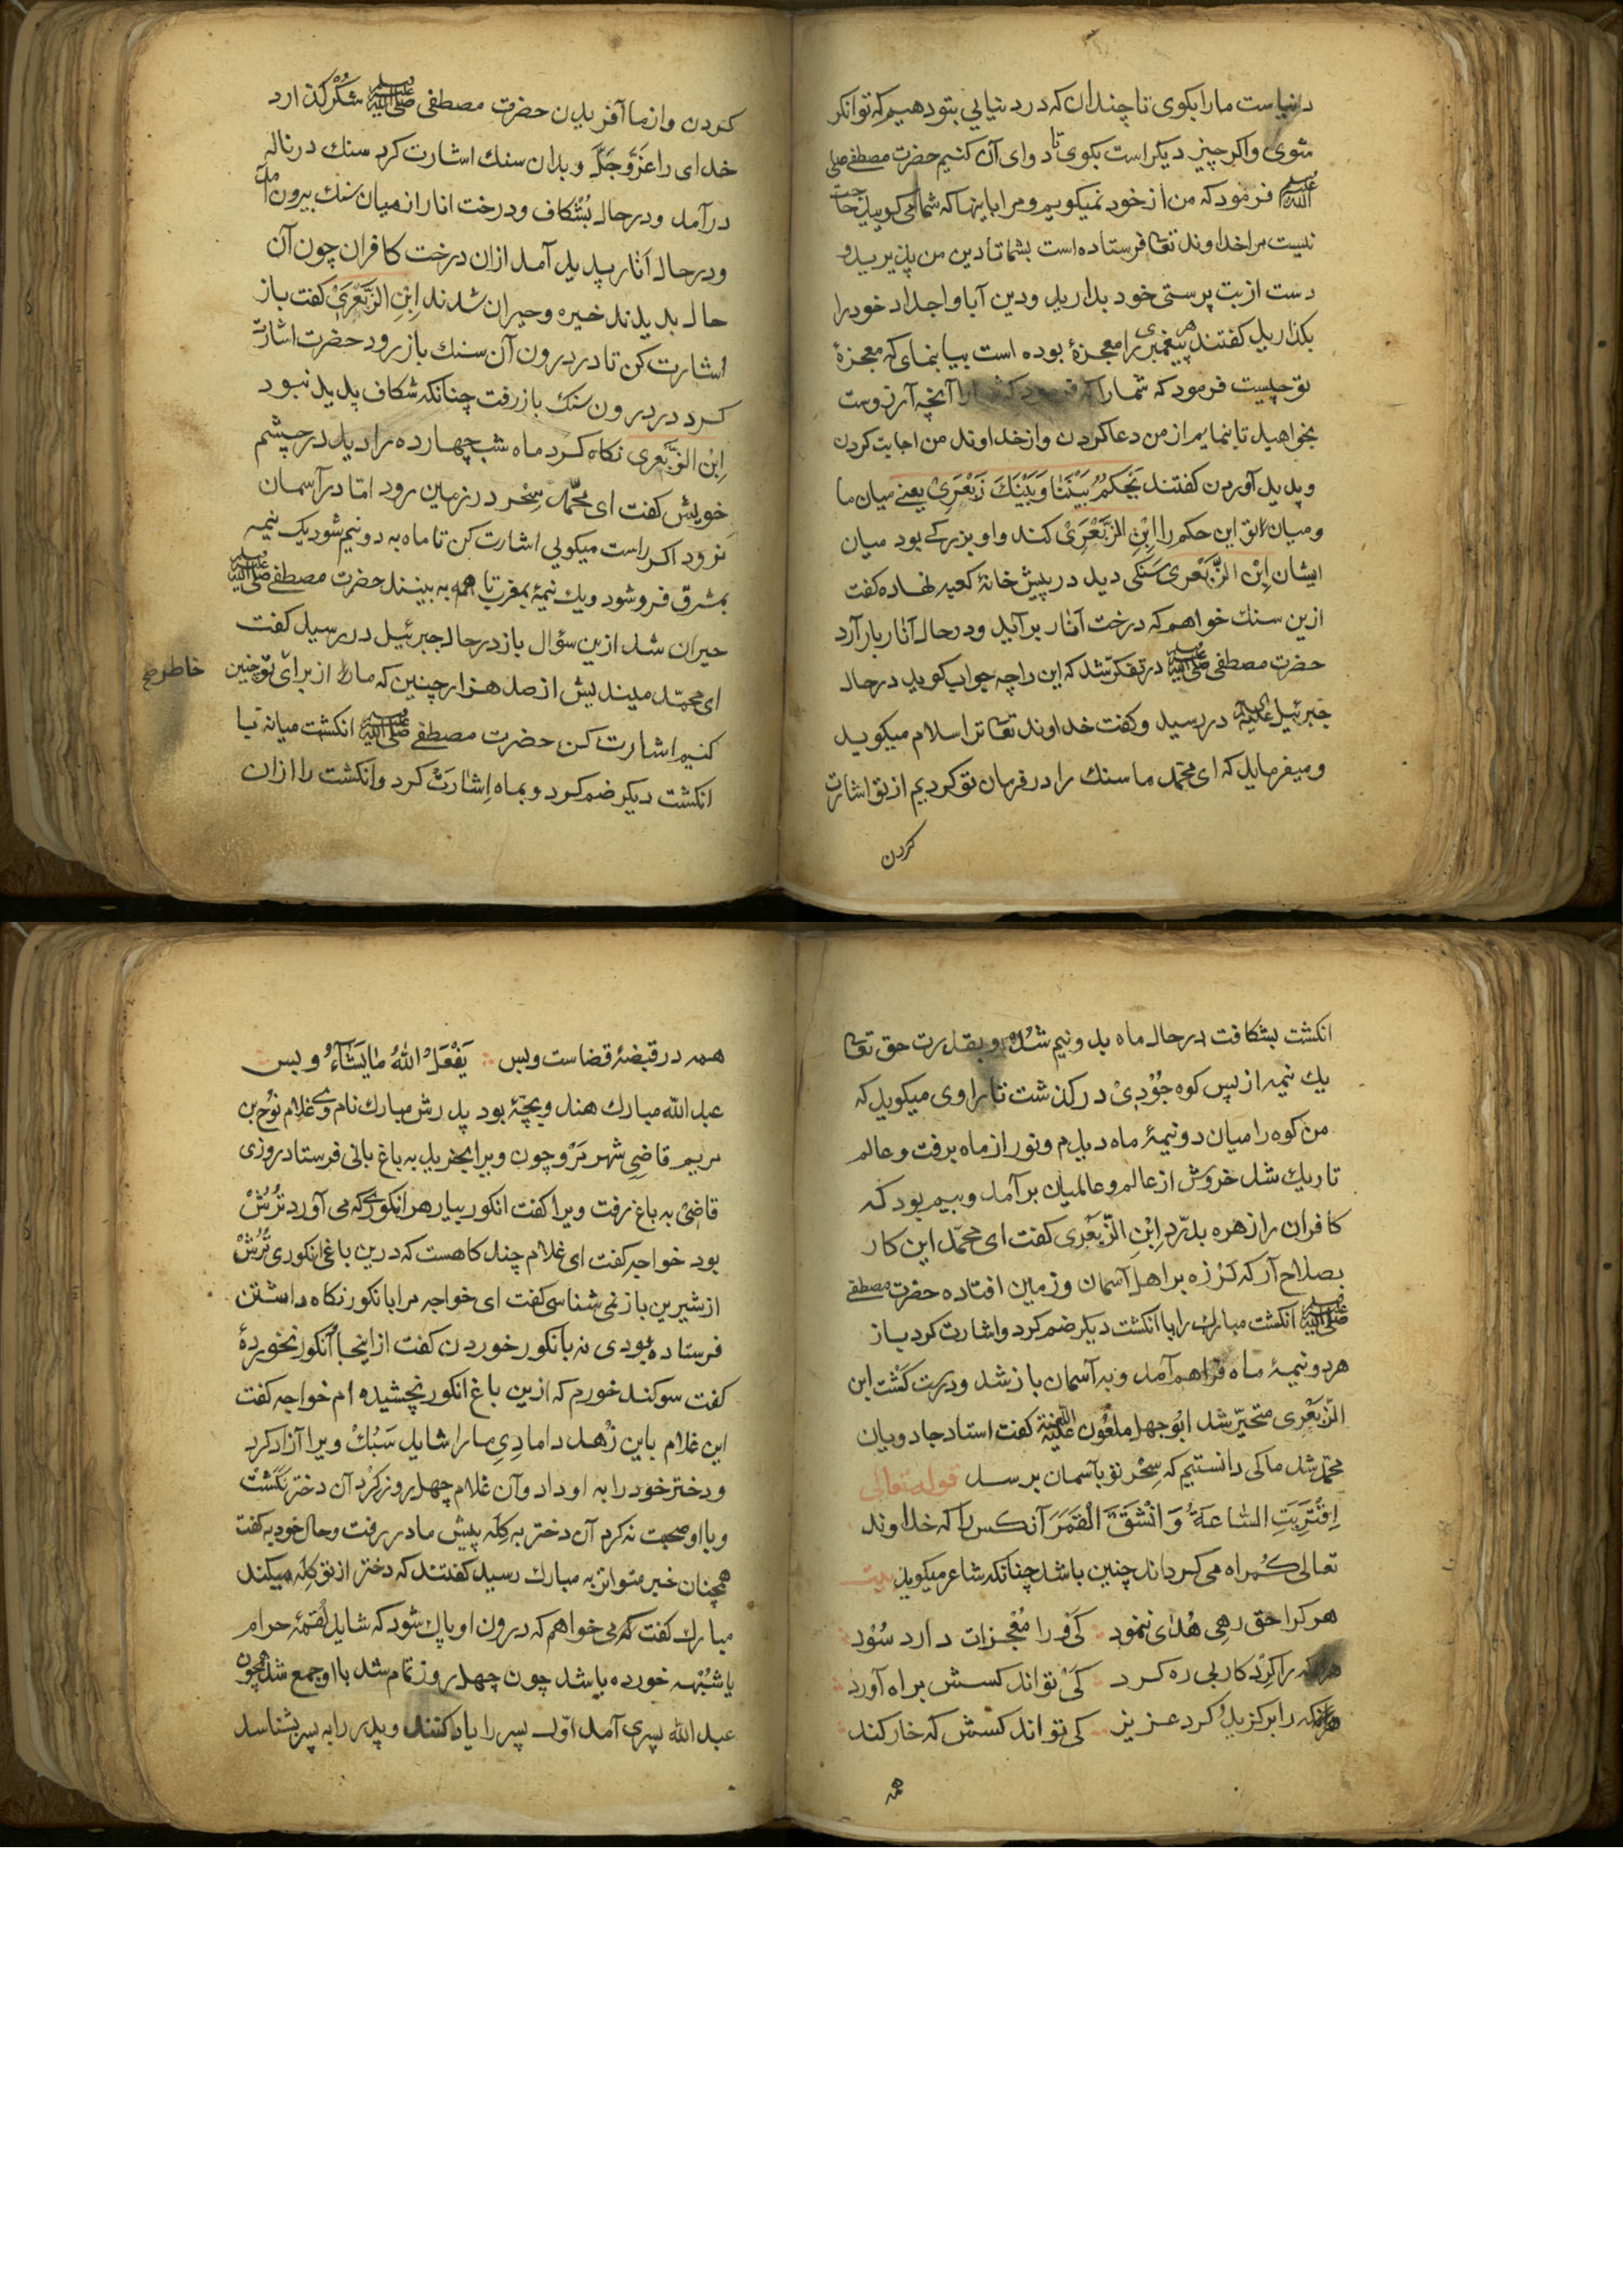 دنیاست مارا بکوی تا چندان که در دنیایی بتو دهیم که توانکر
شوی واکر چیز دیکر است بکوی تا دوای آن کنیم حضرت مصطفی صلی
الله علیه وسلم فرمود که من از خود نمیکویم ومرا باینها که شما می کویید حاجت
نیست مرا خداوند تعا فرستاده است بشما تا دین من پذیرید و
دست از بت پرستی خود بدارید ودین آبا واجداد خود را
بکذارید کفتند هر پیغمبری را معجزهٔ بوده است بیا بنمای که معجزهٔ
تو چیست فرمود که شمارا آنچه آرزوست
بخواهید تا بنمایم از من دعا کردن واز خداوند من اجابت کردن
وپدید آوردن کفتند یَحْکُمُ بَیْنَنَا وَبَیْنَكَ زَبَعْرَیْ یعنے میان ما
ومیان تو این حکم را اِبْنِ الزَّبَعْرَیْ کند واو بزرکے بود میان
ایشان اِبْن الزَّبَعْرَی سنکی دید در پیش خانهٔ کعبه نهاده کفت
ازین سنك خواهم که درخت انار برآید ودرحال انار بار آرد
حضرت مصطفی صلی الله علیه وسلم در تفکّر شد که این را چه جواب کوید درحال
جبرئیل علیه السلام در رسید وکفت خداوند تعا ترا سلام میکوید
ومیفرماید که ای محمّد ما سنك را در فرمان تو کردیم از تو اشارت
کردن
کردن واز ما آفریدن حضرت مصطفی صلی الله علیه وسلم شُکْر کذارد
خدای را عَزَّوَجَلَّ وبدان سنك اشارت کرد سنك در ناله
درآمد ودرحال بُشْکاف ودرخت انار از میان سنك بیرون آمد
ودرحال اَنار پدید آمد ازان درخت کافران چون آن
حال بدیدند خیره وحیران شدند اِبْنِ الزَّبَعْرَیْ کفت باز
اشارت کن تا در درون آن سنك باز رود حضرت اشارت
کرد در درون سنك باز رفت چنانکه شکاف پدید نبود
اِبْن الزَّبَعْرَی نکاه کرد ماه شب چهارده را دید در چشم
خویش کفت ای محمّد سِحْر در زمین رود امّا در آسمان
نرود اکر راست میکویی اشارت کن تا ماه به دو نیم شود یک نیمه
بمشرق فرو شود ویك نیمهٔ بمغرب تا همه به بینند حضرت مصطفی صلی الله علیه وسلم
حیران شد ازین سؤال باز درحال جبرئیل در رسید کفت
ای محمّد میندیش از صد هزار چنین که ما را از برای تو چنین
خاطر صح
کنیم اشارت کن حضرت مصطفی صلی الله علیه وسلم انکشت میانه با
انکشت دیکر ضم کرد وبماه اِشارَتْ کرد وانکشت را ازان
انکشت بشکافت درحال ماه بدو نیم شُدْ وبقدرت حق تعا
یك نیمه از پس کوه جُوْدِیْ در کذشت تا راوی میکوید که
من کوه را میان دو نیمهٔ ماه دیدم ونور از ماه برفت وعالم
تاریك شد خروش از عالم وعالمیان برآمد وبیم بود که
کافران را زهره بدرّد اِبْنِ الزَّبَعْرَی کفت ای محمّد این کار
بصلاح آر که لرزه بر اهل آسمان وزمین افتاده حضرت مصطفی
صلی الله علیه وسلم انکشت مبارك را با انکشت دیکر ضم کرد واشارت کرد باز
هر دو نیمهٔ ماه فراهم آمد وبه آسمان باز شد ودرست کَشْت ابن
الزَّبَعْرَی متحیّر شد ابُو جهل ملعُون علیه اللعنة کفت استاد جادویان
محمّد شد ما کی دانستیم که سِحْر تو بآسمان برسد قوله تعالی
اِقْتَرَبَتِ السَّاعَةُ وَانْشَقَّ الْقَمَرَ آنکس را که خداوند
تعالی کُمراه می کرداند چنین باشد چنانکه شاعر میکوید بیت
هر کرا حق رهِی هُدٰی ننمود کَیْ وُرا مُعْجزات دارد سُوْد
هر که را کِرْد کار بی ره کرد کَیْ تواند کسش براه آورد
هر که را برکزیدُ کرد عزیز کی تواند کسش که خار کند
همه
همه در قبضهٔ قضاست وبس یَفْعَلُ اللهُ مَا یَشَآءُ وبس
عبد الله مبارك هندویچهٔ بود پدرش مبارك نام وی غلام نُوْح بن
مریم قاضِی شهر مَرْو چون ویرا بخرید به باغ بانی فرستاد روزی
قاضیْ به باغ رفت ویرا کفت انکور بیار هر انکوری که می آورد تُرُشْ
بود خواجه کفت ای غلام چند کاهست که درین باغی انکوری تُرُشْ
از شیرین باز نمی شناسی کفت ای خواجه مرا بانکور نکاه داشتن
فرستاده بودی نه بانکور خوردن کفت از اینجا انکور نخوردهٔ
کفت سوکند خورم که ازین باغ انکور نچشیده ام خواجه کفت
این غلام باین زُهْد دامادِی مارا شاید سَبُكْ ویرا آزاد کرد
ودختر خود را به او داد وآن غلام چهل روز کِرْد آن دختر نکَشْت
وبا او صحبت نه کرد آن دختر به کِلَه پیش مادر رفت وحال خود به کفت
همچنان خبر متواتر به مبارك رسید کفتند که دختر از تو کِلَه میکند
مبارك کفت که می خواهم که درون او پاك شود که شاید لُقمهٔ حرام
یا شُبْهه خورده باشد چون چهل روز تمام شد با او جمع شد همچون
عبد الله پسری آمد اوّل پسر را یاد کنند وپدر را به پسر بشناسد